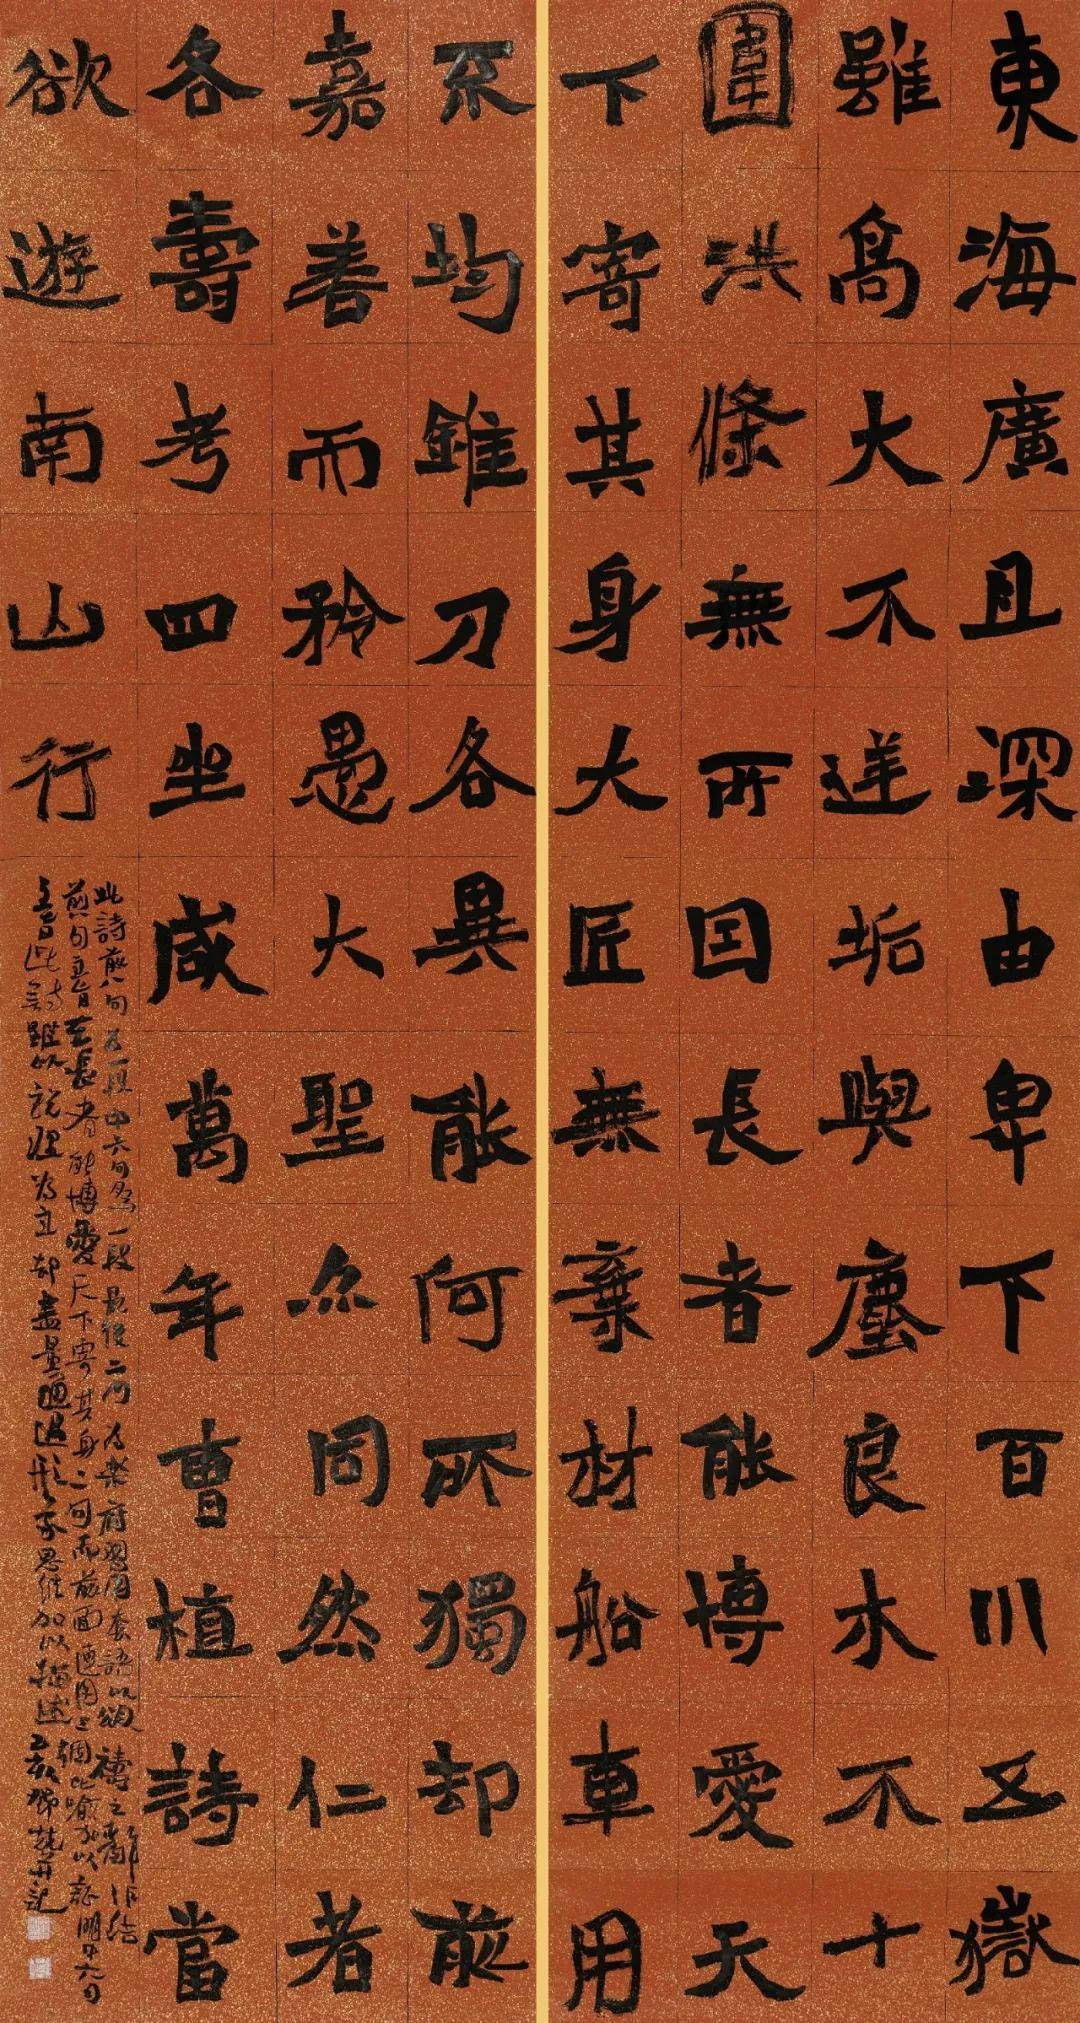 東海廣且深由卑下百川五嶽
雖高大不逆垢與塵良木不十
圍洪條無所因長者能博愛天
下寄其身大匠無棄材船車用
不均錐刀各異能何所獨却前
嘉善而矜愚大聖亦同然仁者
各壽考四坐咸萬年曹植詩當
欲遊南山行
此詩前八句為一段中六句為一段最後二句為樂府習用套語以頌禱之辭作結
前八句主旨在長者能博愛天下寄其身二句而前面連用三個比喻加以證明中六句
主旨此詩雖以說理為主却盡量通過形象思維加以描述乙亥